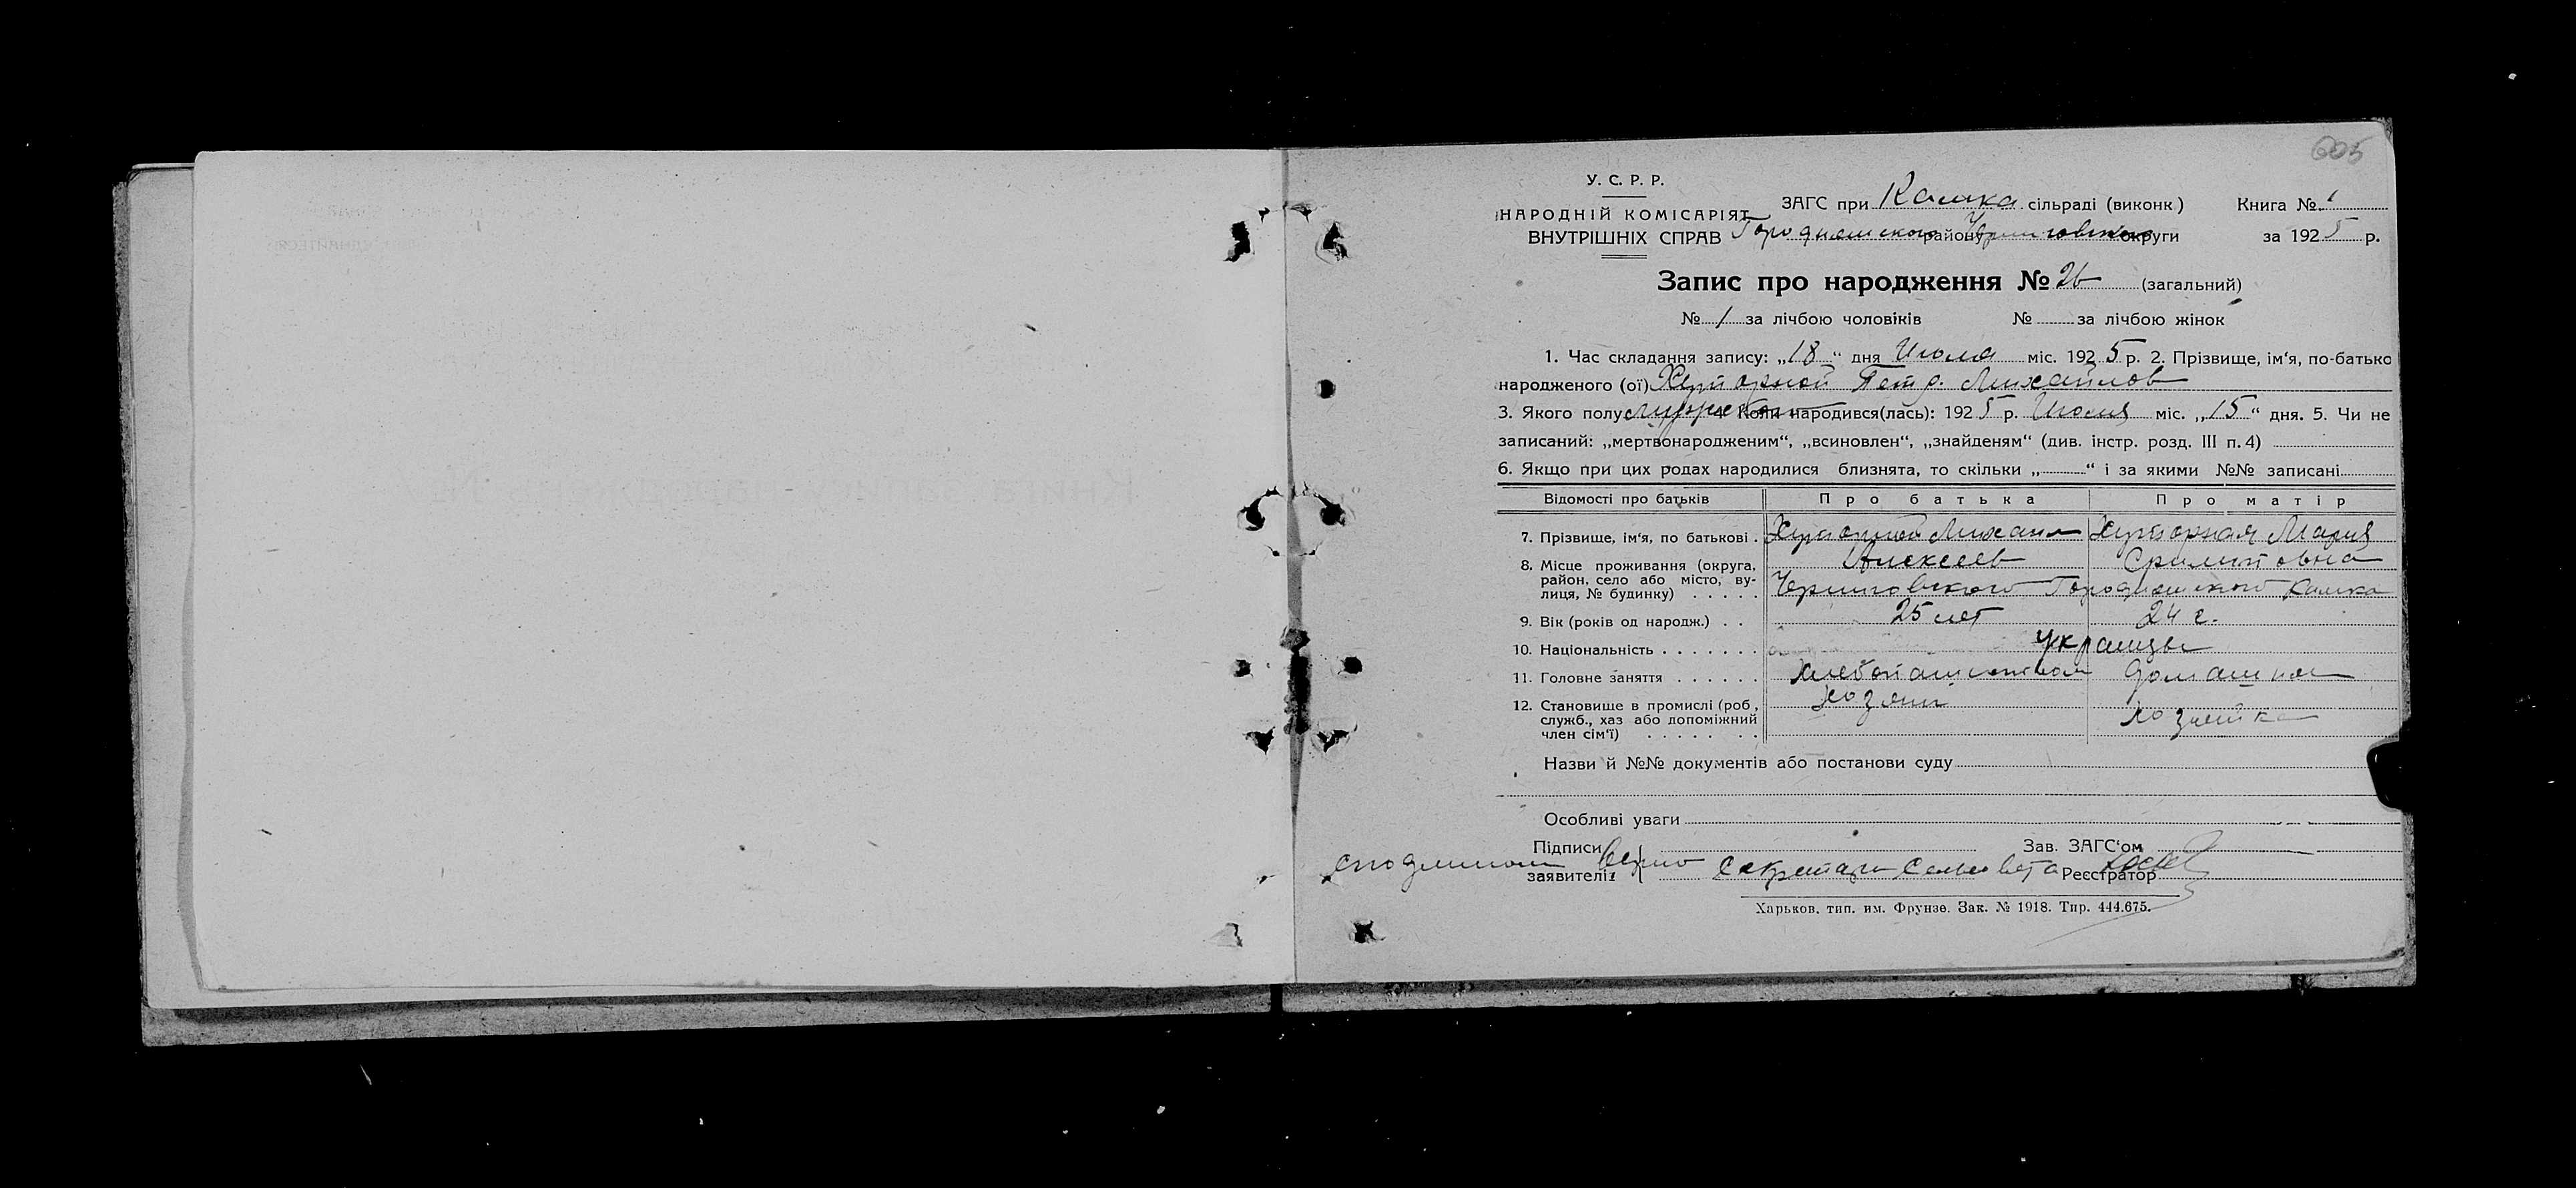 605
У. С. Р. Р.
НАРОДНІЙ КОМІСАРІЯТ
ВНУТРІШНІХ СПРАВ
ЗАГС при Камка сільраді (виконк)
Городнянского району Черниговской округи
Книга № 1
за 1925 р.
Запис про народження № 26 (загальний)
№ 1 за лічбою чоловіків № за лічбою жінок
1. Час складання запису: „18“ дня Июля міс. 1925 р. 2. Прізвище, ім'я, по-батько
народженого (ої) Хуторной Петр. Михайлов
3. Якого полу мужско 4. Коли народився(лась): 1925 р. Июля міс. „15“ дня. 5. Чи не
записаний: „мертвонародженим“, „всиновлен“, „знайденям“ (див. інстр. розд. III п. 4)
6. Якщо при цих родах народилися близнята, то скільки „ “ і за якими №№ записані
Відомості про батьків Про батька Про матір
7. Прізвище, ім'я, по батькові . Хуторной Михаил Хуторная Мария
Алексеев
8. Місце проживання (округа, район, село або місто, вулиця, № будинку) . . . . . Черниговского Городнянского Камка
9. Вік (років од народж.) . . 25 лет 24 г.
10. Національність . . . . . . . Украинцы
11. Головне заняття . . . . . . Хлебопашество домашнее
12. Становище в промислі (роб, служб., хаз або допоміжний член сім'ї) . . . . . . . хозяин хозяйка
Назви й №№ документів або постанови суду
Особливі уваги
Підписи
заявителів
Зав. ЗАГС'ом
с подлинным верно Секретарь Сельсовета Реєстратор
Харьков. тип. им. Фрунзе. Зак. № 1918. Тир. 444.675.